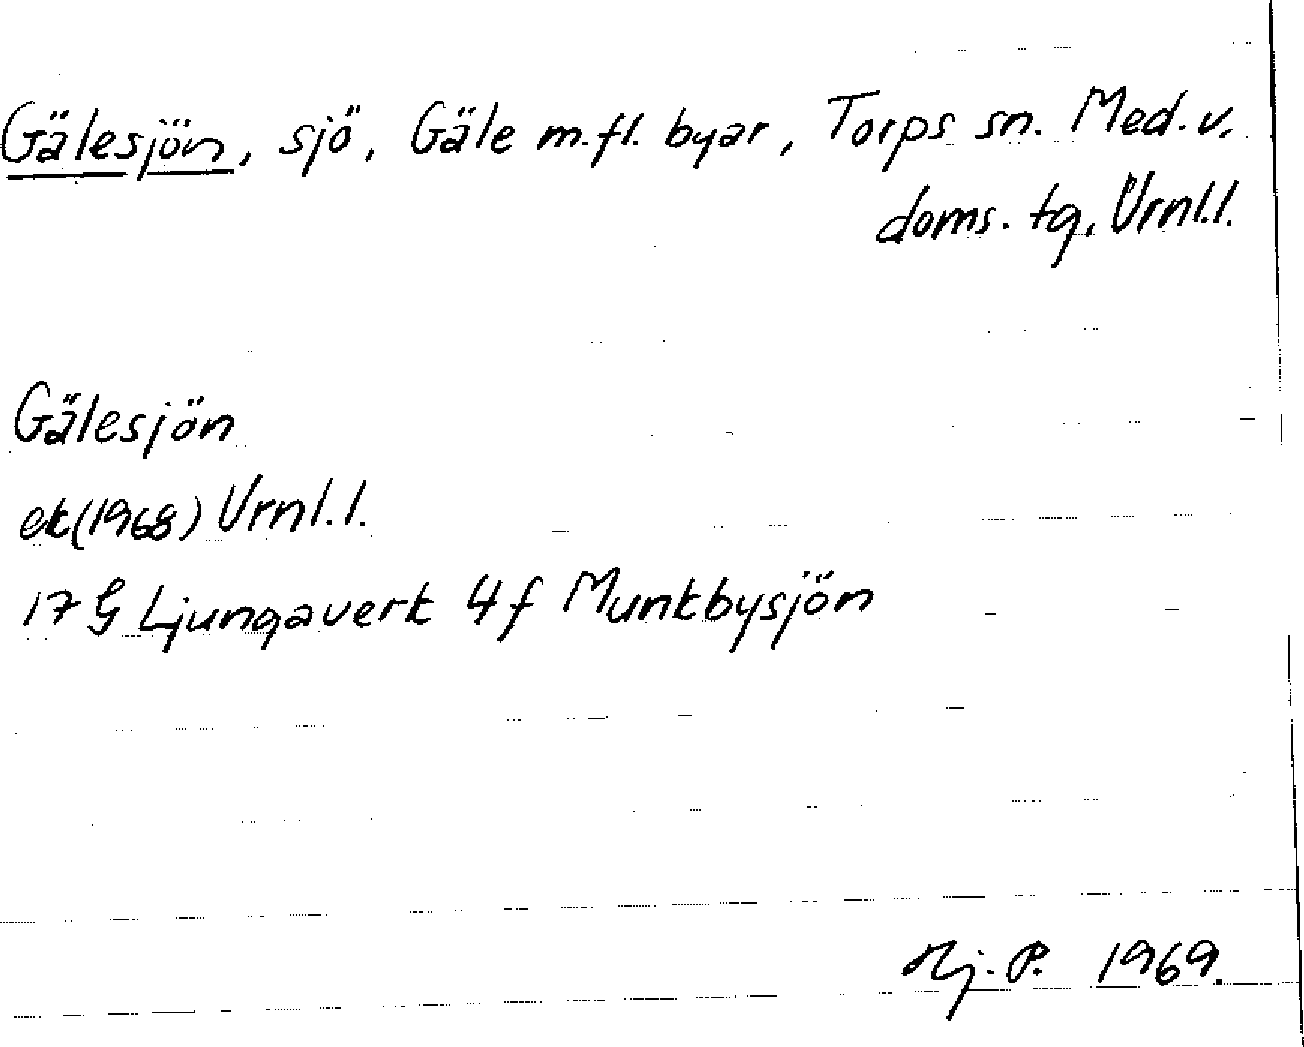 Gälesjön, sjö, Gäle m.fl. byar, Torps sn. Med. v.
doms. tg, Vrnl.l.
Gälesjön
ek(1968) Vrnl.l.
17 G Ljungaverk 4f Munkbysjön
Hj. P. 1969.